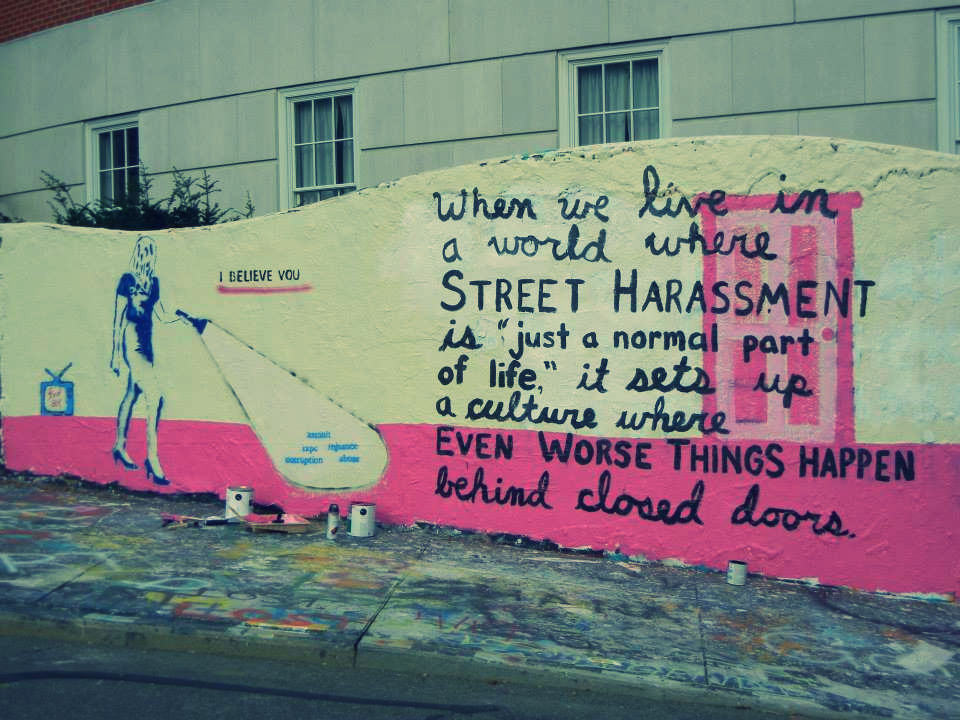 I BELIEVE YOU
When we live in
a world where
STREET HARASSMENT
is "just a normal part
of life," it sets up
a culture where
EVEN WORSE THINGS HAPPEN
behind closed doors.
assault
rape injustice
corruption abuse